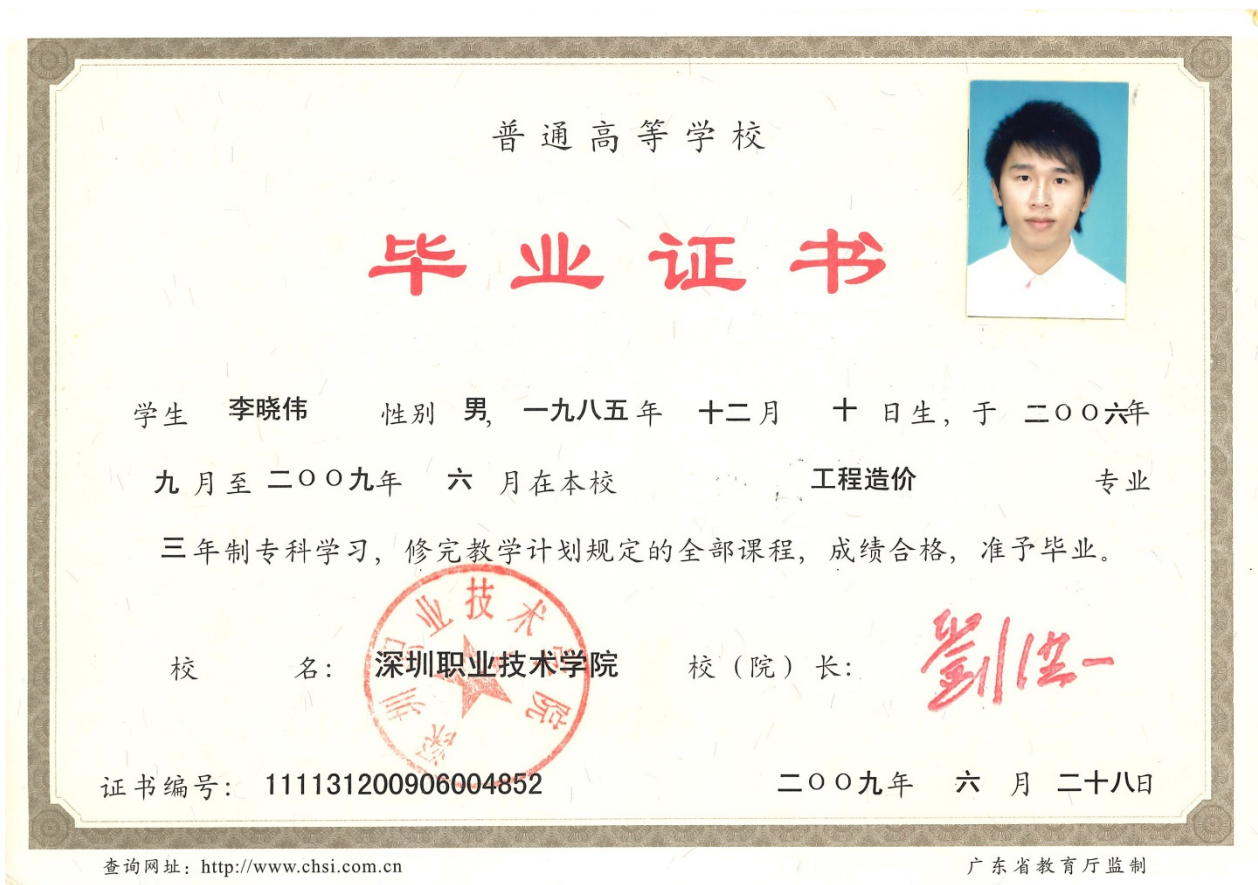 普通高等学校
毕业证书
学生 李晓伟 性别 男, 一九八五年 十二月 十 日生, 于 二〇〇六年
九月至 二〇〇九年 六 月在本校 工程造价 专业
三年制专科学习, 修完教学计划规定的全部课程, 成绩合格, 准予毕业。
校 名: 深圳职业技术学院 校（院）长: 劉洪一
深圳职业技术学院
证书编号: 111131200906004852 二〇〇九年 六 月 二十八日
查询网址: http://www.chsi.com.cn 广东省教育厅监制